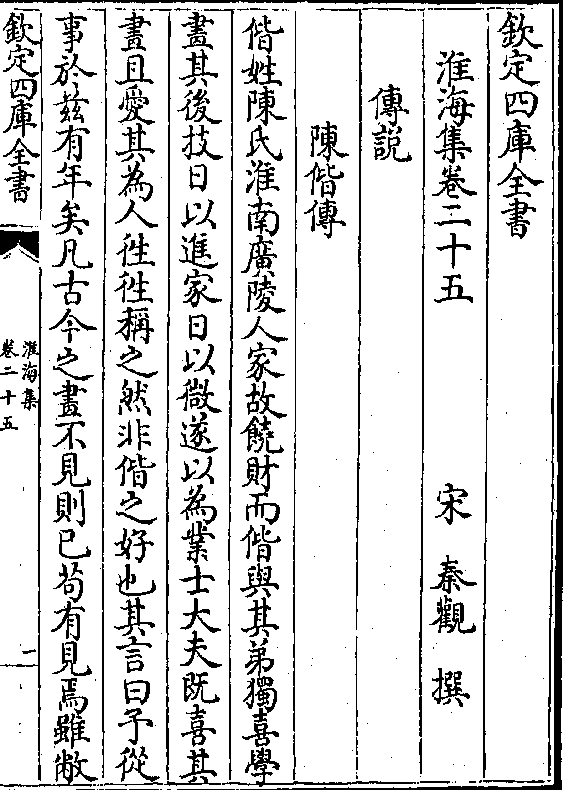 欽定四庫全書
淮海集卷二十五
宋 秦觀 撰
傳説
陳偕傳
偕姓陳氏淮南廣陵人家故饒財而偕與其弟獨喜學
畫其後技日以進家日以微遂以為業士大夫既喜其
畫且愛其為人徃徃稱之然非偕之好也其言曰予從
事於兹有年矣凡古今之畫不見則已茍有見焉雖敝
欽定四庫全書
淮海集
卷二十五
一